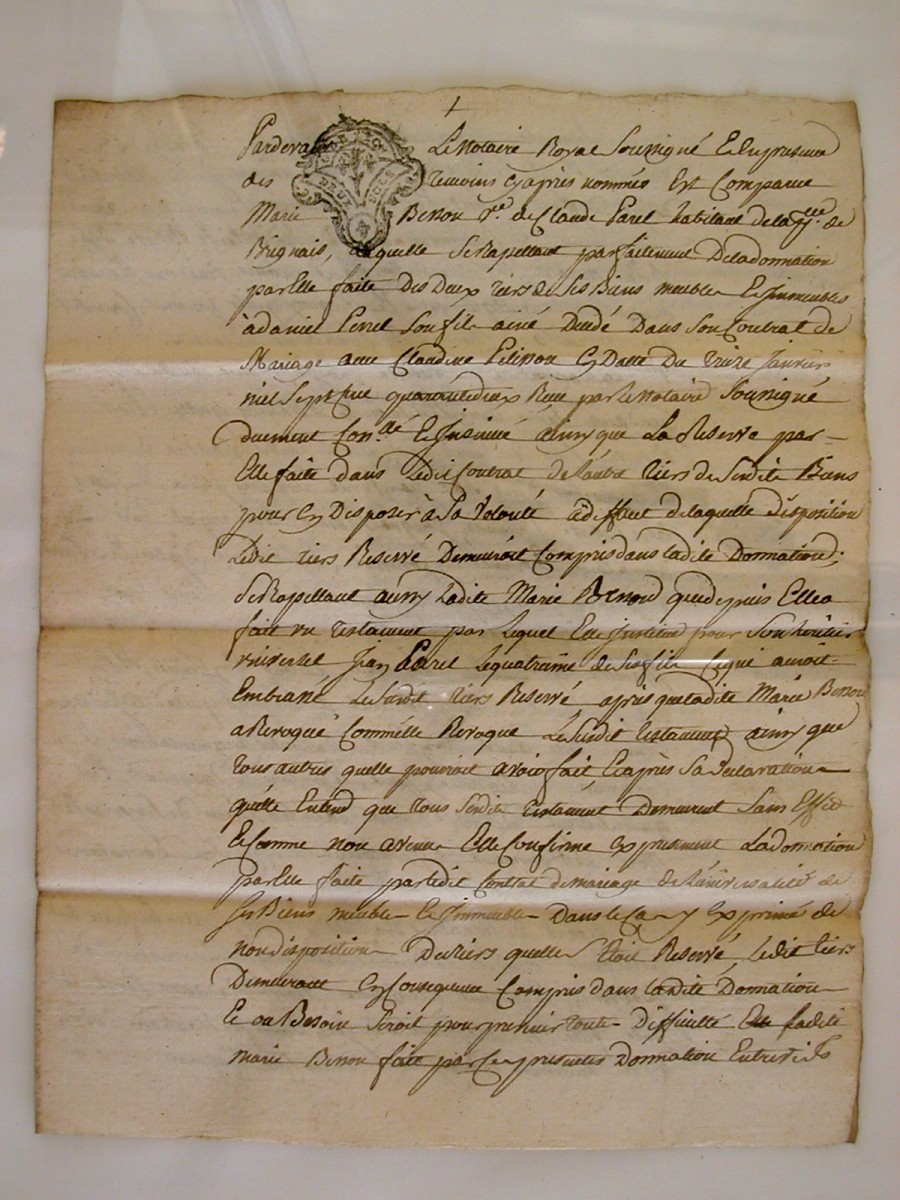 Pardevant Le Notaire Royal Soussigné Et En presence
des temoins cy après nommés Est Comparue
Marie Besson Vve de Claude Parel habitant de la psse de
Brignais, laquelle Se Rapellant parfaitement De la donnation
par Elle faitte Des Deux tiers de Ses Biens meubles Et Immeubles
à daniel Son fils ainé Dans Son Contrat de
Mariage avec Claudine Pelisson En Datte Du treize Janvier
mil Sept Cent quarante deux Recu par le Notaire Soussigné
Duement Con.llé Et Insinué ainsy que La Reserve par
Elle faitte dans Ledit Contrat de L'autre tiers de Sesdits Biens
pour En Disposer à Sa Volonté à deffaut de laquelle disposition
Ledit tiers Reservé Demeuroit Compris dans ladite Donnation;
Se Rapellant aussy Ladite Marie Besson que depuis Elle a
fait un testament par Lequel Elle Institue pour Son heritier
universel Jean Parel Le quatrieme de Ses fils Ce qui auroit
Embrassé Le Susdit tiers Reservé après que ladite Marie Besson
a Revoqué Comm'elle Revoque Le Susdit testament ainsy que
tous autres quelle pouroit avoir fait, Et après Sa declaration
quelle Entend que tous Sesdits testament Demeurent Sans Effet
Et Comme non avenus Elle Confirme Expressement La donnation
par Elle faitte par ledit Contrat de mariage de L'universalité de
Ses Biens meubles Et Immeubles Dans le Cas y Exprimé de
non disposition Du tiers quelle S'étoit Reservé, Ledit tiers
Demeurant En Consequence Compris dans ladite Donnation
Et ou Besoin Seroit pour toute Difficulté Ladite
Marie Besson fait par Ces presentes Donnation Entre vifs